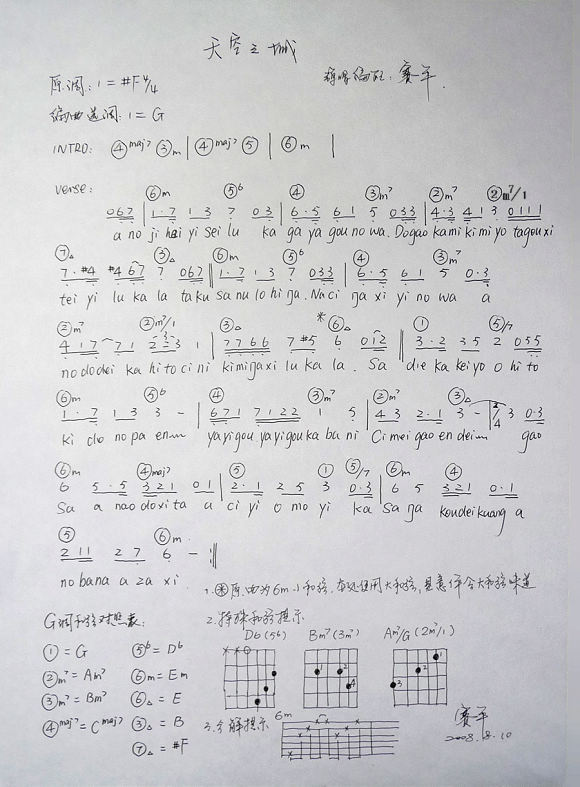 天空之城
原调: 1=#F 4/4
编配: 赛平
编曲选调: 1=G
INTRO: ④maj7 ③m | ④maj7 ⑤ | ⑥m |
verse: ⑥m ⑤6 ④ ③m7 ②m7 ②m7/1
067 | 1·7 1 3 7 03 | 6·5 6 1 5 033 | 4·3 4 1 3 0111
a no ji hai yi sei lu ka ga ya gou no wa. Do gao ka mi ki mi yo ta gou xi
⑦△ ③△ ⑥m ⑤6 ④ ③m7
7·#4 #4 67 7 067 | 1·7 1 3 7 033 | 6·5 6 1 5 0·3
tei yi lu ka la ta ku sa nu lo hi ŋa. Na ci ŋa xi yi no wa a
②m7 ②m7/1 ③△ *⑥△ ① ⑤/7
417 71 223 1 | 7766 7 #5 6 012 | 3·2 35 2 055
no do dei ka hi to ci ni ki mi ŋa xi lu ka la. Sa die ka kei yo o hi to
⑥m ⑤6 ④ ③m7 ②m7 ③△
1·7 1 3 3 - | 671 7122 1 5 | 43 2·1 3 - 2/4 3 0·3
ki do no pa en ya yi gou ya yi gou ka ba ni Ci mei gao en dei gao
⑥m ④maj7 ⑤ ① ⑤/7 ⑥m ④
6 5·5 321 01 | 2·1 25 3 0·3 | 6 5 321 0·1
Sa a nao do xi ta a ci yi o mo yi ka Sa ŋa kou dei kuang a
⑤ ⑥m
211 27 6 - ‖
no ba na a za xi
1.※原曲为6m小和弦,本处使用大和弦,是意作合大和弦味道
2.特殊和弦提示
G调和弦对照表:
Db(5b) Bm7(3m7) Am7/G(2m7/1)
①=G ⑤b=Db
②m7=Am7 ⑥m=Em
③m7=Bm7 ⑥△=E
④maj7=Cmaj7 ③△=B
⑦△=#F
3.分解提示 6m
赛平
2008.8.10